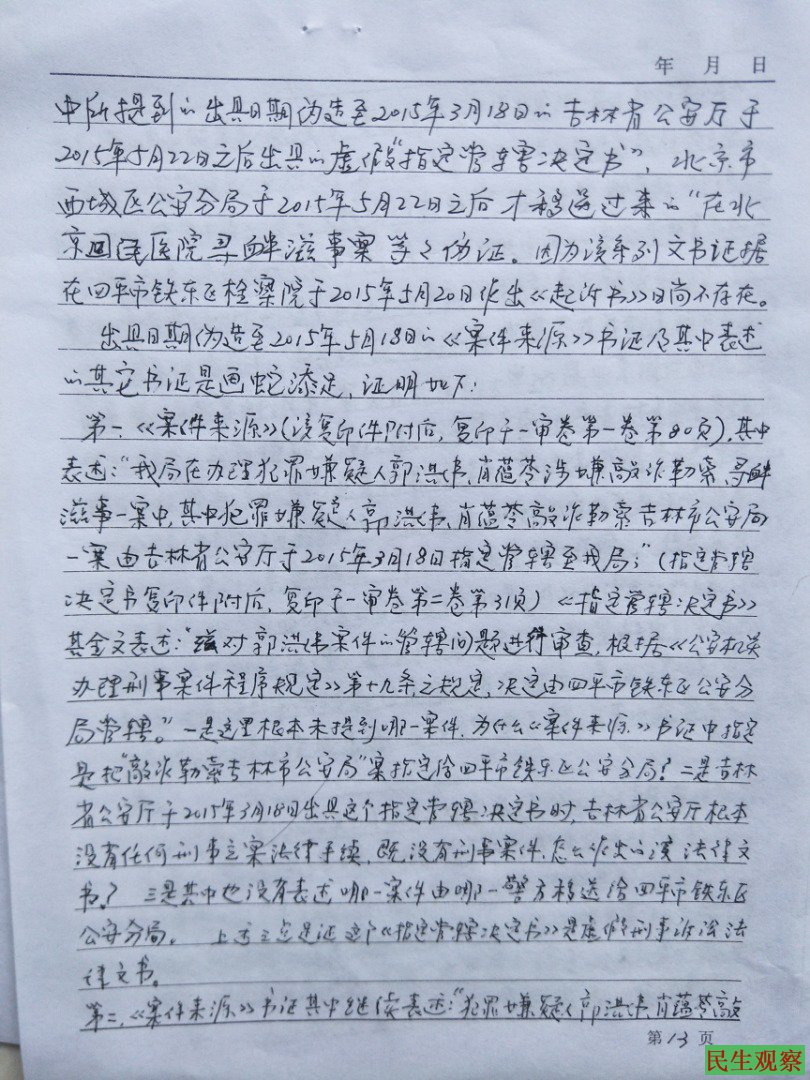 年 月 日
中所提到的出具日期伪造至2015年3月18日的吉林省公安厅于
2015年5月22日之后出具的虚假“指定管辖决定书”，北京市
西城区公安分局于2015年5月22日之后才移送过来的“在北
京回民医院寻衅滋事案等之伪证。因为该系列文书证据
在四平市铁东区检察院于2015年5月20日作出《起诉书》日尚不存在。
出具日期伪造至2015年5月18日的《案件来源》书证及其中表述
的其它书证是画蛇添足，证明如下：
第一、《案件来源》（该复印件附后，复印于一审卷第一卷第80页），其中
表述：“我局在办理犯罪嫌疑人郭洪伟、肖蕴苓涉嫌敲诈勒索、寻衅
滋事一案中，其中犯罪嫌疑人郭洪伟、肖蕴苓敲诈勒索吉林市公安局
一案由吉林省公安厅于2015年3月18日指定管辖至我局；”（指定管辖
决定书复印件附后，复印于一审卷第二卷第31页）《指定管辖决定书》
其全文表述：“对郭洪伟案件的管辖问题进行审查，根据《公安机关
办理刑事案件程序规定》第十九条之规定，决定由四平市铁东区公安分
局管辖。”一是这里根本未提到哪一案件，为什么《案件来源》书证中指定
是把“敲诈勒索吉林市公安局”案指定给四平市铁东区公安分局？二是吉林
省公安厅于2015年3月18日出具这个指定管辖决定书时，吉林省公安厅根本
没有任何刑事立案法律手续，既没有刑事案件，怎么作出的该法律文
书？ 三是其中也没有表述哪一案件由哪一警方移送给四平市铁东区
公安分局。 上述三点足证这个《指定管辖决定书》是虚假刑事诉讼法
律文书。
第二、《案件来源》书证其中继续表述：“犯罪嫌疑人郭洪伟、肖蕴苓敲
第13页
民生观察